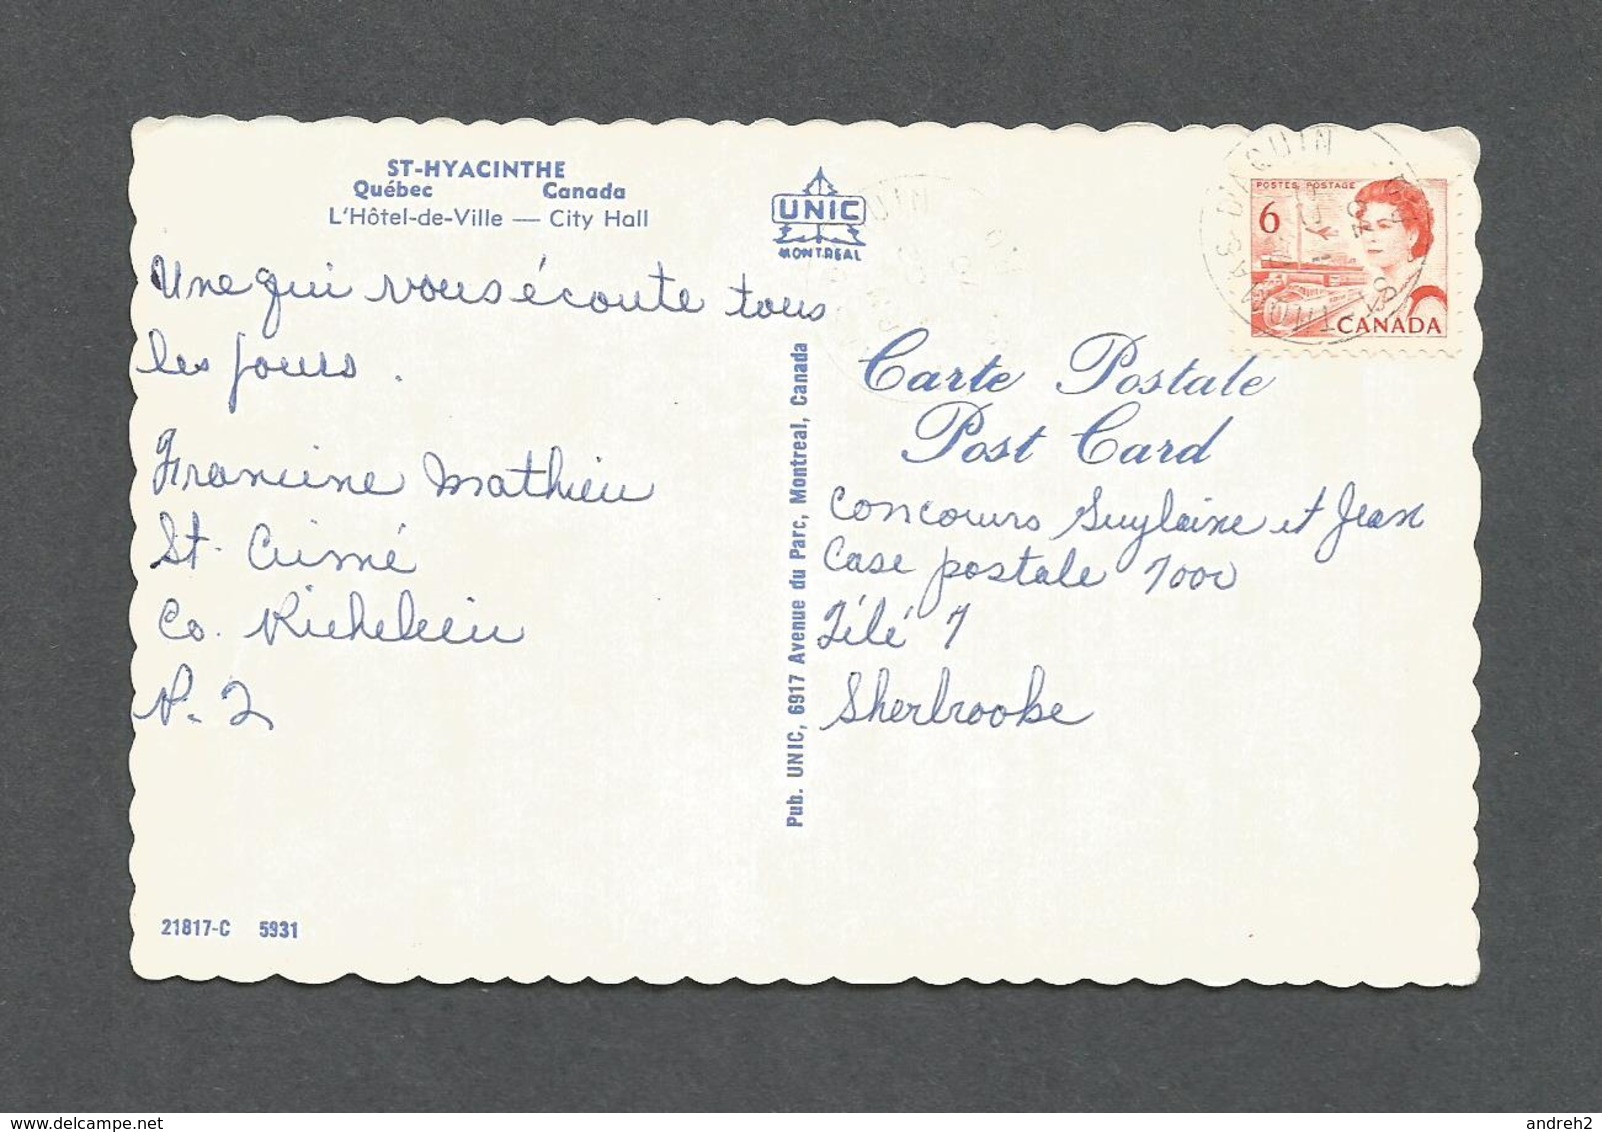 ST-HYACINTHE
Québec Canada
L'Hôtel-de-Ville — City Hall
UNIC
MONTREAL
Une qui vous écoute tous
les jours.
Francine Mathieu
St. Aimé
Co. Richelieu
P. 2
21817-C 5931
Pub. UNIC, 6917 Avenue du Parc, Montreal, Canada
POSTES POSTAGE
6
CANADA
Carte Postale
Post Card
Concours Guylaine et Jean
Case postale 7000
Télé 7
Sherbrooke
delcampe.net
andreh2